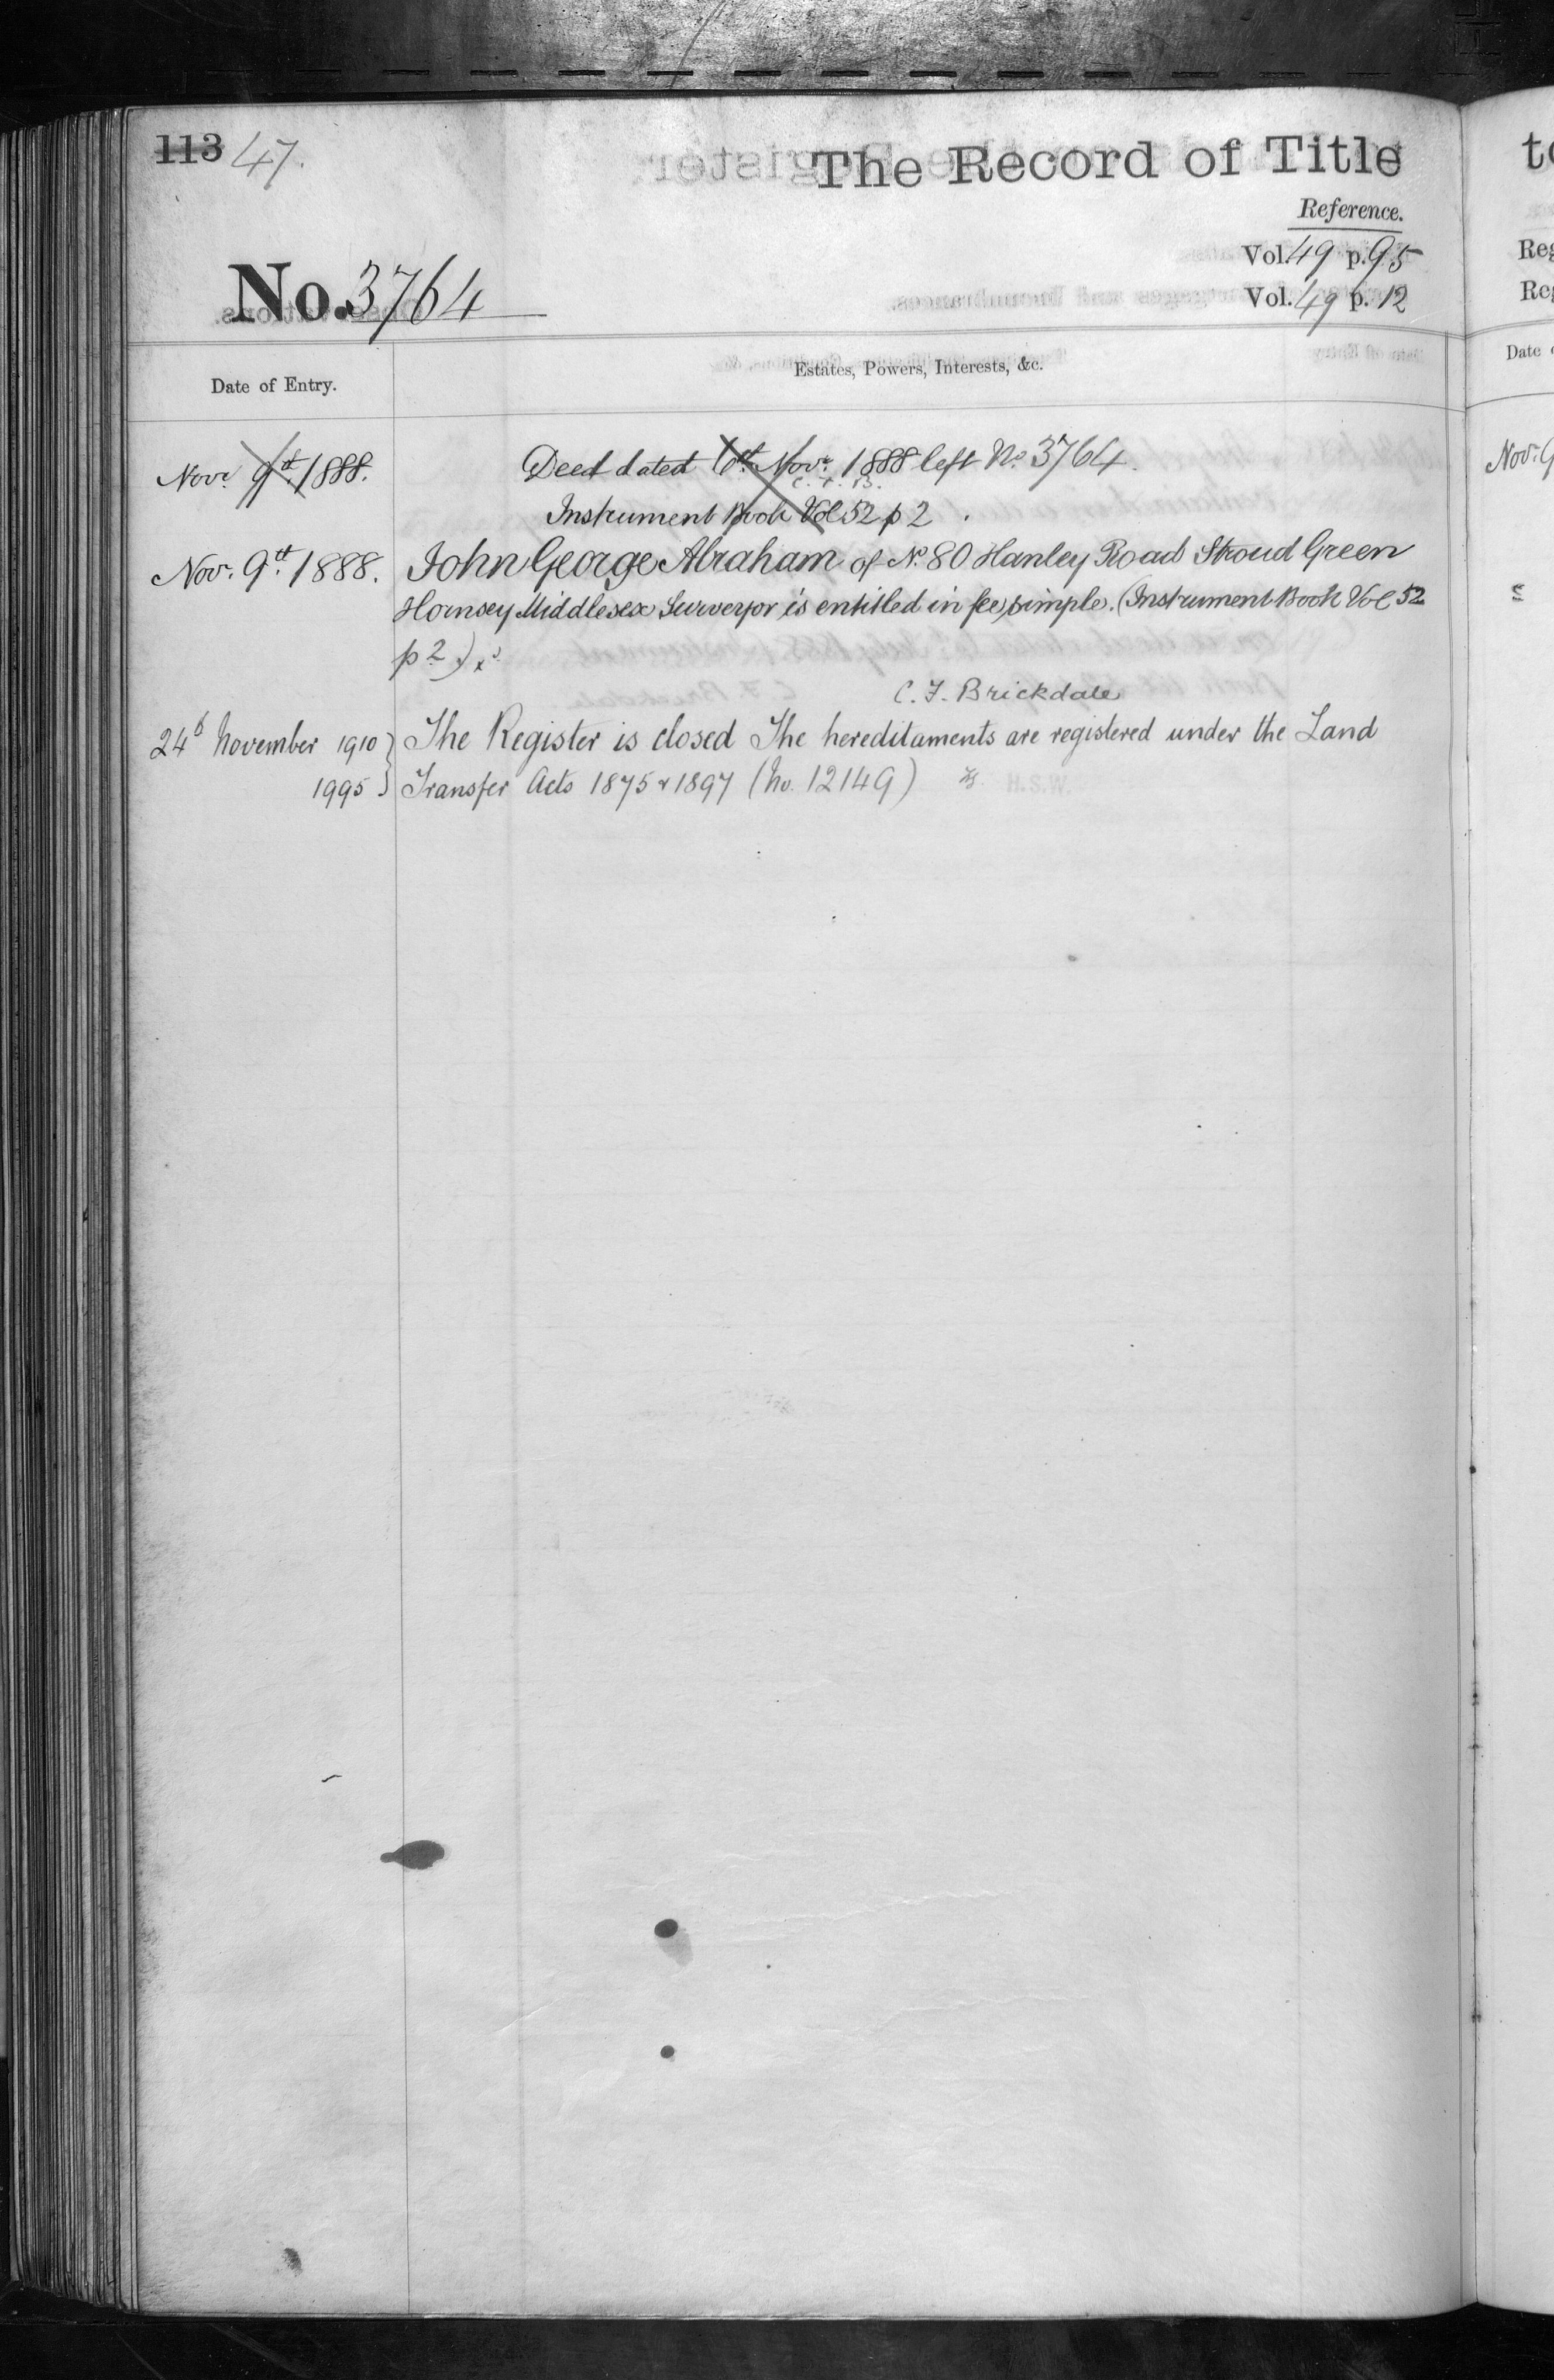 113 47.
The Record of Title
Reference.
Vol. 49 p. 95
Vol. 49 p. 12
No. 3764
Date of Entry.
Estates, Powers, Interests, &c.
Novr. 9th 1888.
Deed dated 6th Novr. 1888 left No. 3764.
C. F. B.
Instrument Book Vol 52 p 2
Nov. 9th 1888. John George Abraham of No. 80 Hanley Road Stroud Green
Hornsey Middlesex Surveyor is entitled in fee simple. (Instrument Book Vol 52
p 2)
C. F. Brickdale
24th November 1910 The Register is closed The hereditaments are registered under the Land
1995 Transfer Acts 1875 & 1897 (No. 12149) H.S.W.
to
Reg
Reg
Date
Nov. 9